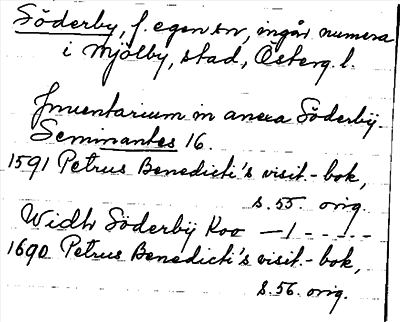 Söderby, f. egen sn, ingår numera
i Mjölby, stad, Österg. l.
Inventarium in anexa Söderbij.
Seminantes 16.
1591 Petrus Benedicti's visit.-bok,
s. 55. orig.
Widh Söderbij Koo — 1 - - - - -
1690 Petrus Benedicti's visit.-bok,
s. 56. orig.